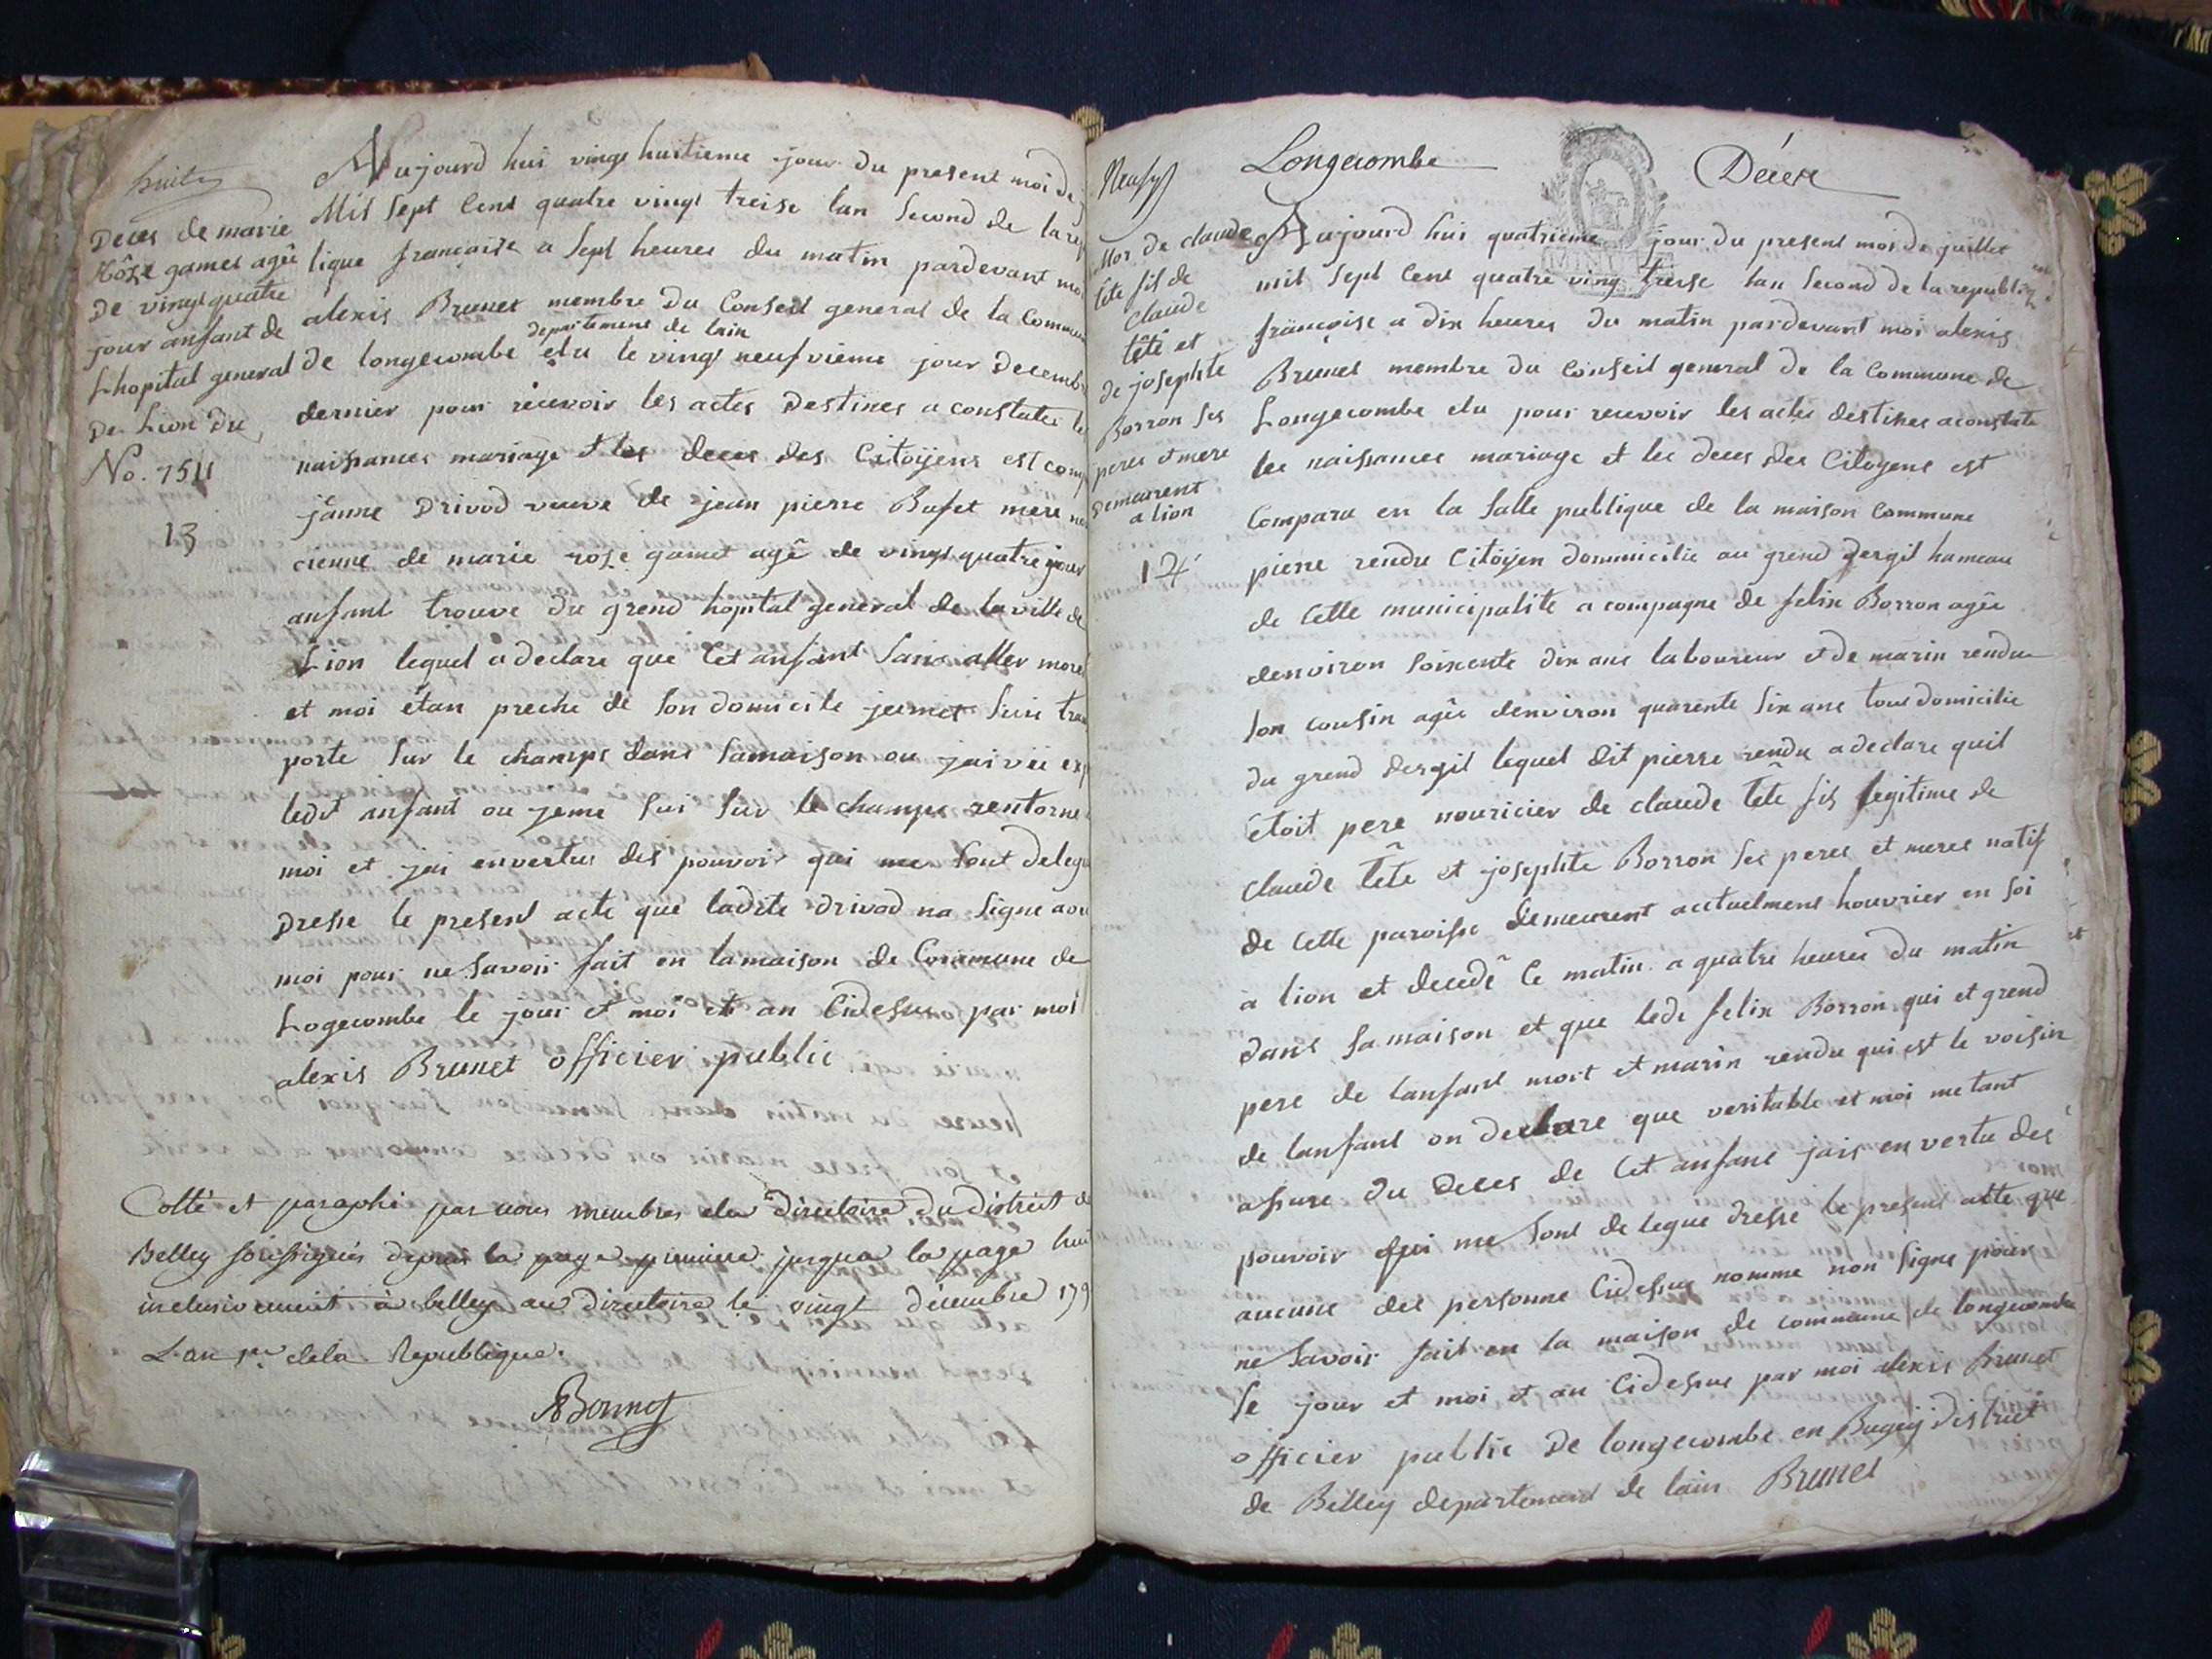 huit
Deces de marie
Rôze gamet agêe
De vingt quatre
jour anfant de
Lhopital general
De Lion du
No. 7511
13
Aujourd hui vingt huitieme jour du present moi de
Mil Sept Cent quatre vingt treise lan Second de la rep
lique francaise a Sept heures du matin pardevant moi
alexis Brunet membre du Conseil general de la Commun
departement de lain
de longecombe élu le vingt neufvieme jour Decemb
dernier pour recevoir les actes Destines a constater les
naissances mariage et les deces des Citoÿens est comp
jànne Drivod veuve de jean pierre Bufet mere nou
cienne de marie rose gamet agê de vingt quatre jour
anfant trouve du grend hopital general de la ville de
Lion lequel a declare que Cet anfant Sans aller mort
et moi étan preche de Son domicile jemet Suis tran
porte Sur le champs dans Samaison ou jai vüe exp
ledit anfant ou jeme Sui Sur le champs rentorne
moi et jai envertus des pouvoir qui me Sont delegu
Dresse le present acte que ladite drivod na Signe avec
moi pour ne Savoir fait en lamaison de Commune de
Logecombe le jour et moi et an Cidesus par moi
alexis Brunet officier public
Cotté et paraphé par nous membres du Directoire du District de
Belley Soussignés depuis la page premiere jusqua la page hui
inclusivement à belley au directoire le vingt décembre 179
L'an 1er dela Republique.
Neuf
Longecombe
Décere
Mor de claude
tête fils de
Claude
tête et
de josephte
Borron Ses
peres et mere
Demeurent
a lion
14
Aujourd hui quatrieme jour du present mois de juillet
mil Sept Cent quatre ving treise lan Second de la republiq
françoise a dix heures du matin pardevant moi alexis
Brunet membre du Conseil general de la Commune de
Longecombe elu pour recevoir les acte destines a constate
les naissances mariage et les deces des Citoyens est
Comparu en la Salle publique de la maison Commune
pierre rendu Citoÿen dommicilie au grend dergil hameau
de Cette municipalite a compagne de felix Borron agêe
denviron Soixente dix ans laboureur et de marin rendu
Son cousin agêe denviron quarente Six ans tous domicilie
du grend dergil lequel dit pierre rendu a declare quil
étoit pere nouricier de claude tête fils legitime de
claude tête et josephte Borron Ses peres et meres natif
de Cette paroisse demeurent actuelment houvrier en Soi
à lion et decedê Ce matin a quatre heures du matin
dans Sa maison et que ledi felix Borron qui et grend
pere de lanfant mort et marin rendu qui est le voisin
de lanfant on declare que veritable et moi metant
assure du Deces de Cet anfant jais en vertu des
pouvoir qui me Sont de legue dresse le present acte que
aucune des personne Cidesus nomme non Signe pour
ne Savoir fait en la maison de commune de longecombe
le jour et moi et an Cidesus par moi alexis Brunet
officier public De longecombe en Bugey District
de Belley departement de lain Brunet